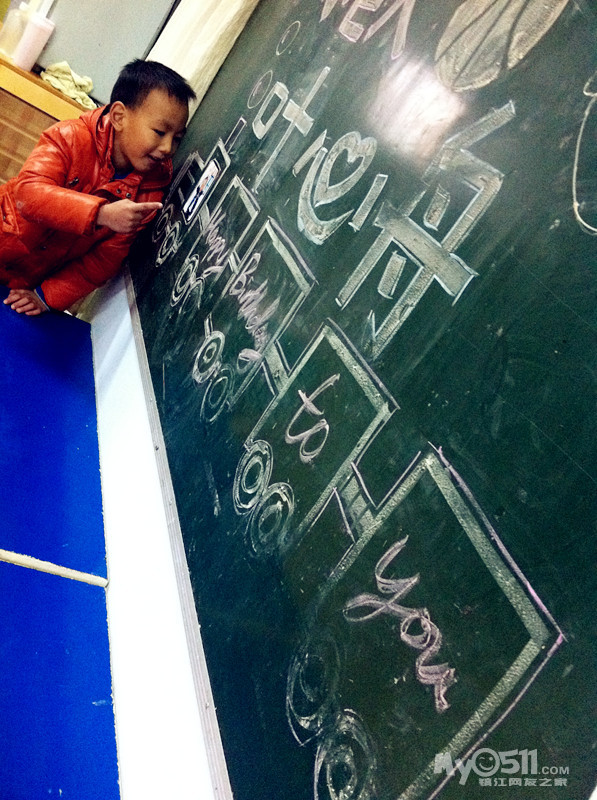 叶心
Happy Birthday to you
My0511.COM
镇江网友之家